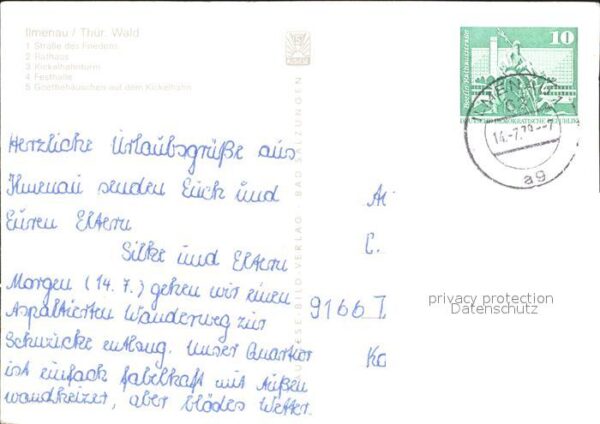 Ilmenau / Thür. Wald
1 Straße des Friedens
2 Rathaus
3 Kickelhahnturm
4 Festhalle
5 Goethehäuschen auf dem Kickelhahn
10
Berlin, Rathausstraße
DEUTSCHE DEMOKRATISCHE REPUBLIK
ILMENAU
14.-7.79--7
ag
Herzliche Urlaubsgrüße aus
Ilmenau senden Euch und
Euren Eltern
Silke und Eltern
Morgen (14. 7.) gehen wir einen
Aspaltierten Wanderweg zur
Schmücke entlang. Unser Quartier
ist einfach fabelhaft mit Außen
wandheizer, aber blödes Wetter.
BILD-VERLAG · BAD SALZUNGEN
Al
C.
9166 J
Ko
privacy protection
Datenschutz